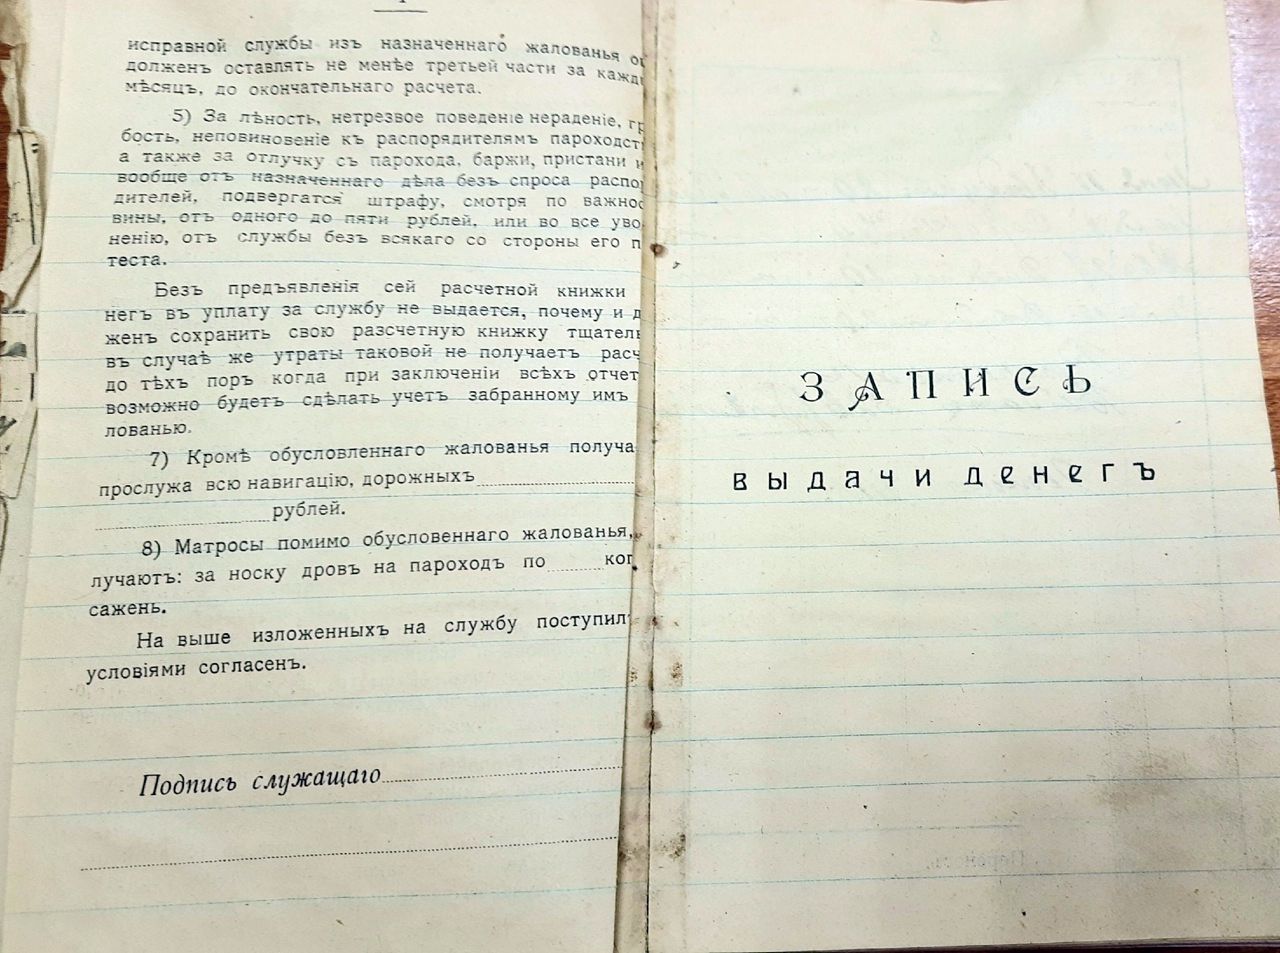 исправной службы изъ назначеннаго жалованья
долженъ оставлять не менѣе третьей части за
мѣсяцъ, до окончательнаго расчета.
5) За лѣность, нетрезвое поведеніе нераденіе,
бость, неповиновеніе къ распорядителямъ
а также за отлучку съ парохода, баржи, пристани
вообще отъ назначеннаго дѣла безъ спроса
дителей, подвергатся штрафу, смотря по
вины, отъ одного до пяти рублей, или во все
ненію, отъ службы безъ всякаго со стороны его
теста.
Безъ предъявленія сей расчетной книжки
негъ въ уплату за службу не выдается, почему и
женъ сохранить свою разсчетную книжку
въ случаѣ же утраты таковой не получаетъ
до тѣхъ поръ когда при заключеніи всѣхъ
возможно будетъ сдѣлать учетъ забранному имъ
лованью.
7) Кромѣ обусловленнаго жалованья
прослужа всю навигацію, дорожныхъ
рублей.
8) Матросы помимо обусловеннаго жалованья,
лучаютъ: за носку дровъ на пароходъ по
сажень.
На выше изложенныхъ на службу
условіями согласенъ.
Подпись служащаго
ЗАПИСЬ
выдачи денегъ